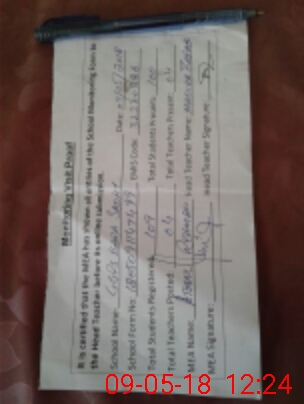 Monitoring Visit Proof
It is certified that the MEA has shown all entries of the School Monitoring Form to
the Head Teacher before its online submission.
School Name: Date: 09/05/2018
School Form No: EMIS Code:
Total Students Registered: 109 Total Students Present: 100
Total Teachers Posted: 04 Total Teachers Present: 04
MEA Name: Head Teacher Name:
MEA Signature: Head Teacher Signature:
09-05-18 12:24